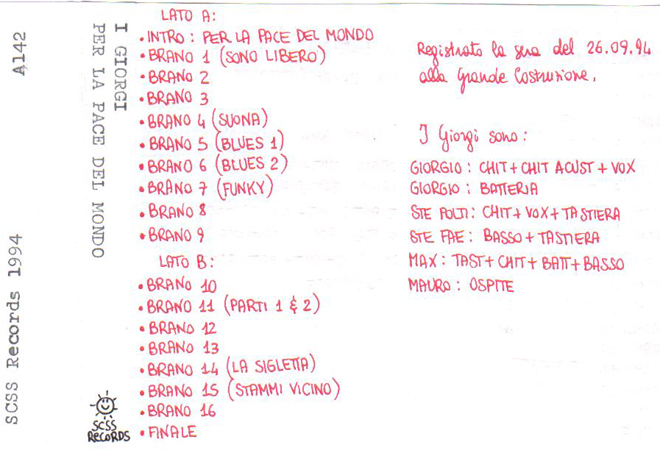 A142
SCSS Records 1994
I GIORGI
PER LA PACE DEL MONDO
LATO A:
• INTRO: PER LA PACE DEL MONDO
• BRANO 1 (SONO LIBERO)
• BRANO 2
• BRANO 3
• BRANO 4 (SUONA)
• BRANO 5 (BLUES 1)
• BRANO 6 (BLUES 2)
• BRANO 7 (FUNKY)
• BRANO 8
• BRANO 9
LATO B:
• BRANO 10
• BRANO 11 (PARTI 1 & 2)
• BRANO 12
• BRANO 13
• BRANO 14 (LA SIGLETTA)
• BRANO 15 (STAMMI VICINO)
• BRANO 16
• FINALE
SCSS
RECORDS
Registrato la sera del 26.09.94
alla Grande Costruzione.
I Giorgi sono:
GIORGIO: CHIT+CHIT ACUST+VOX
GIORGIO: BATTERIA
STE POLTI: CHIT+VOX+TASTIERA
STE FAE: BASSO+TASTIERA
MAX: TAST+CHIT+BATT+BASSO
MAURO: OSPITE